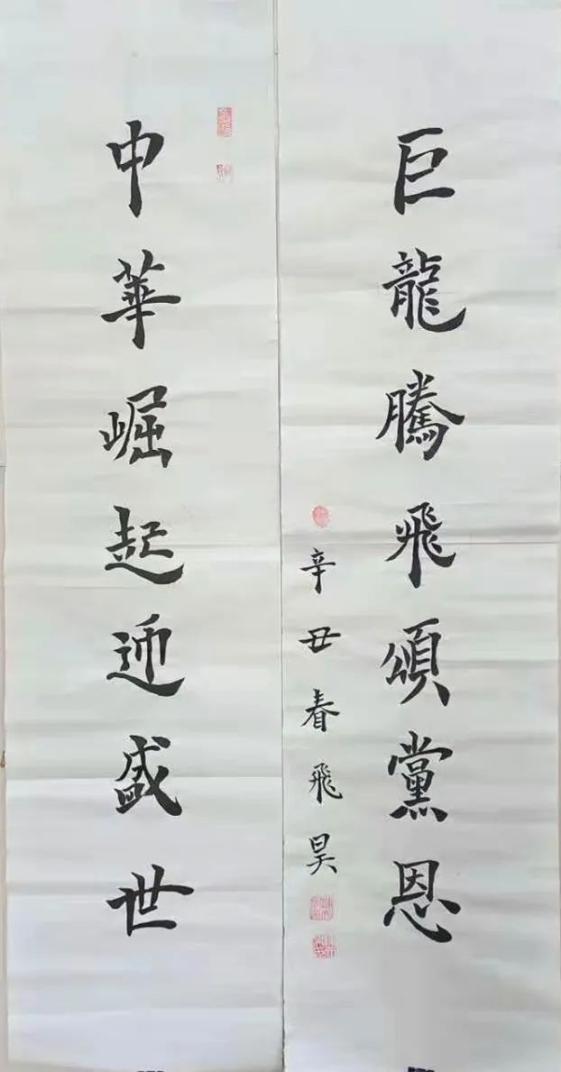 中華崛起迎盛世
巨龍騰飛頌黨恩
辛丑春飛昊